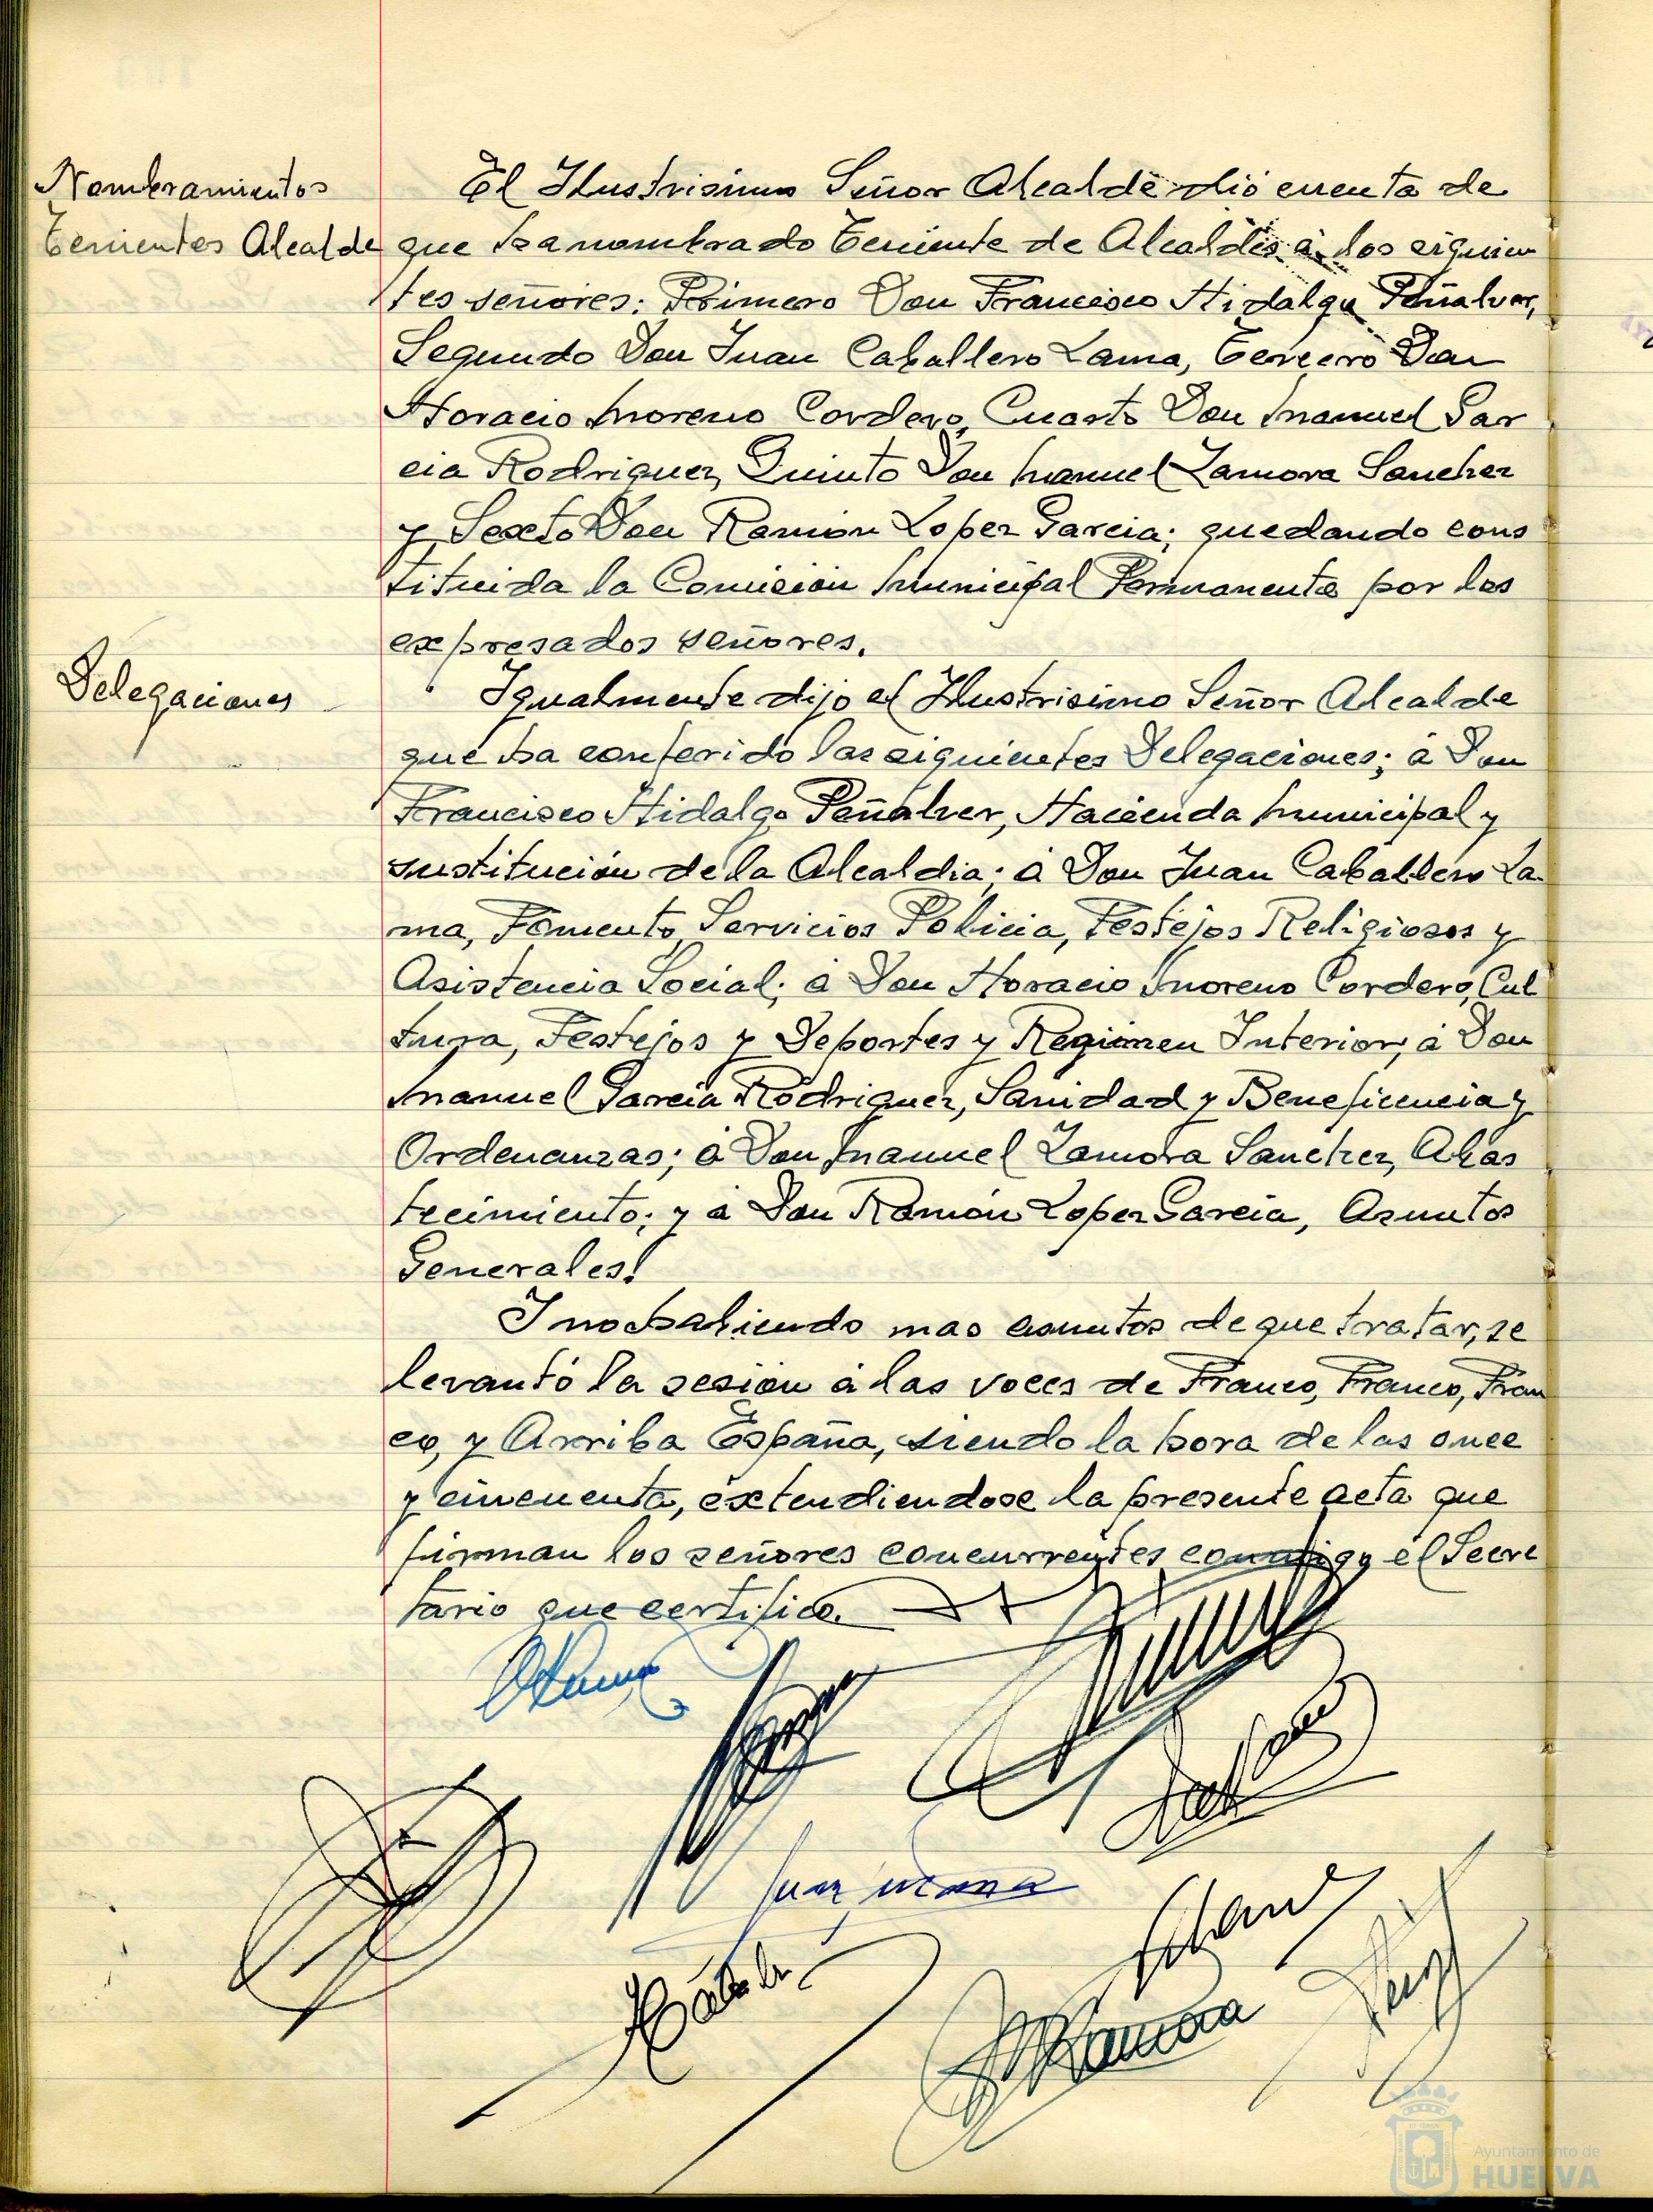 Nombramientos
Tenientes Alcalde
El Ilustrisimo Señor Alcalde dió cuenta de
que ha nombrado Teniente de Alcaldes á los siguien
tes señores: Primero Don Francisco Hidalgo Peñalver,
Segundo Don Juan Caballero Lama, Tercero Don
Horacio Moreno Cordero, Cuarto Don Manuel Gar
cia Rodriguez, Quinto Don Manuel Zamora Sanchez
y Sexto Don Ramón Lopez Garcia; quedando cons
tituida la Comision Municipal Permanente por los
expresados señores.
Delegaciones
Igualmente dijo el Ilustrisimo Señor Alcalde
que ha conferido las siguientes Delegaciones; á Don
Francisco Hidalgo Peñalver, Hacienda Municipal y
sustitución de la Alcaldia; á Don Juan Caballero La
ma, Fomento, Servicios Policia, Festejos Religiosos y
Asistencia Social; á Don Horacio Moreno Cordero, Cul
tura, Festejos y Deportes y Regimen Interior; á Don
Manuel Garcia Rodriguez, Sanidad y Beneficencia y
Ordenanzas; á Don Manuel Zamora Sanchez, Abas
tecimiento; y á Don Ramón Lopez Garcia, Asuntos
Generales.
Y no habiendo mas asuntos de que tratar, se
levantó la sesión á las voces de Franco, Franco, Fran
co, y Arriba España, siendo la hora de las once
y cincuenta, extendiendose la presente acta que
firman los señores concurrentes conmigo el Secre
tario que certifico.
Zamora
Ayuntamiento de
HUELVA